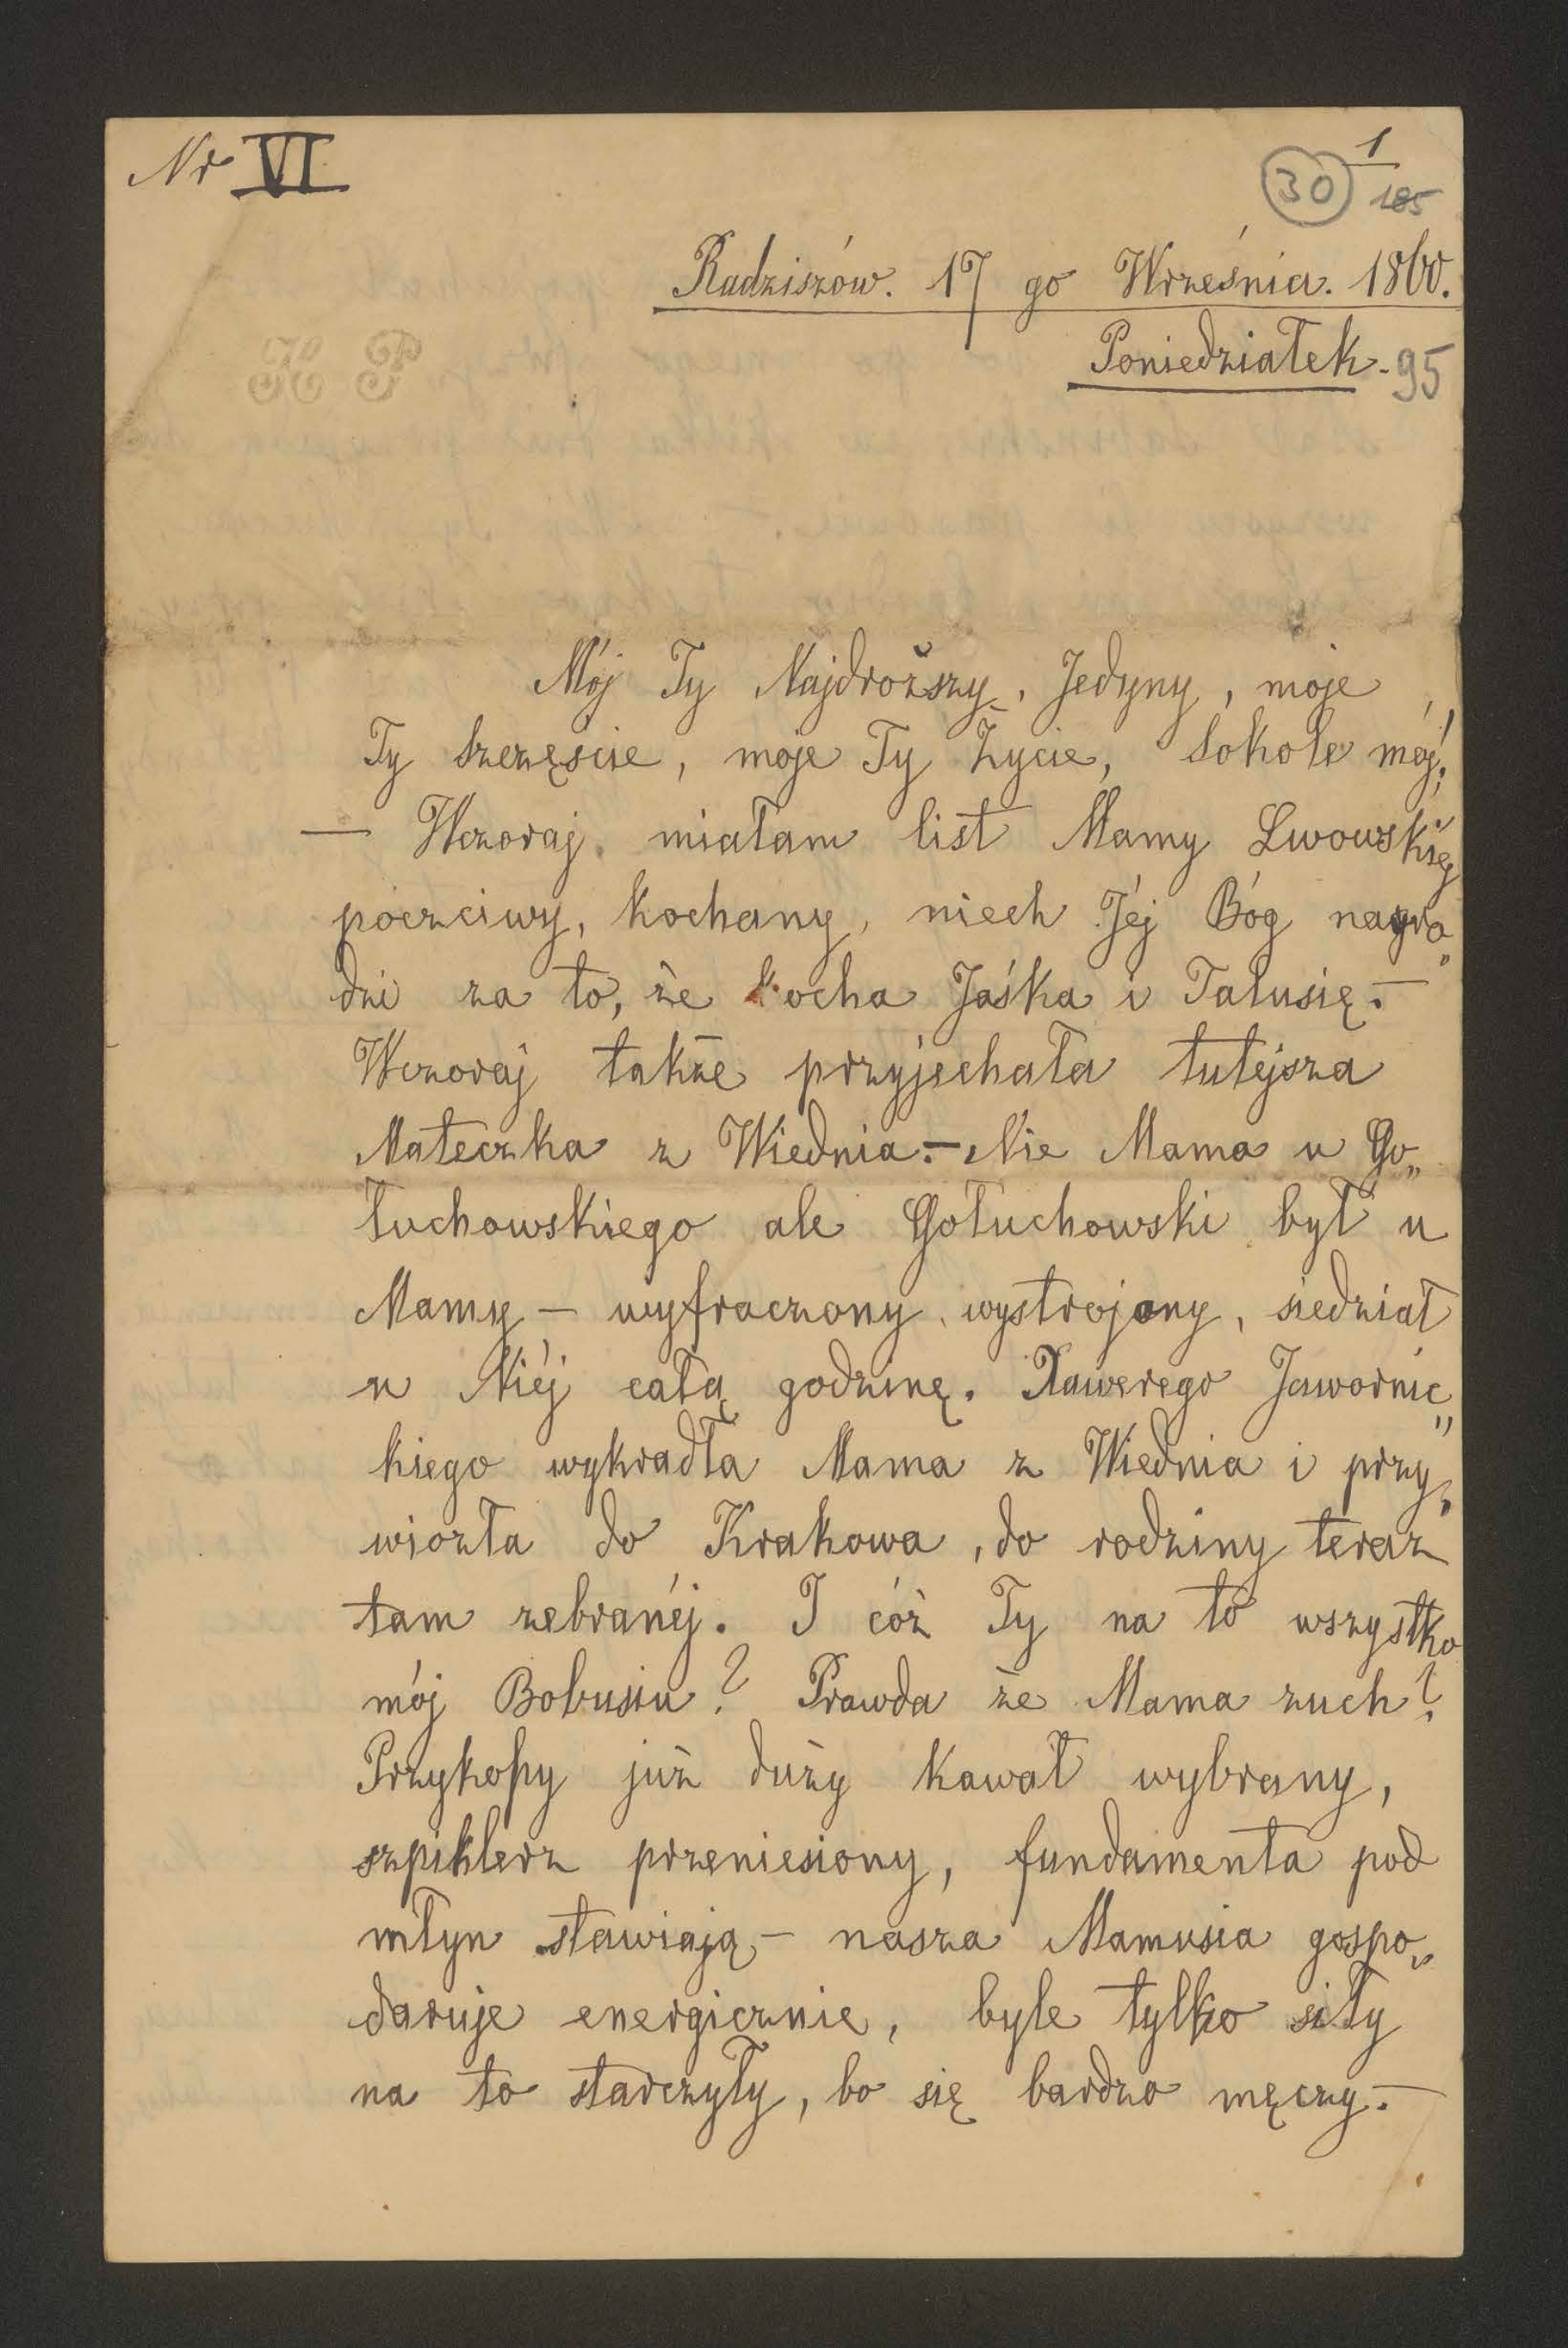 Nr VI
30 1/185
Radziszów. 17 go Września. 1860.
Poniedziałek. 95
K P
Mój Ty Najdroższy, Jedyny, moje
Ty szczęście, moje Ty Życie, Sokole mój!
— Wczoraj miałam list Mamy Lwowskiéj
poczciwy, kochany, niech Jéj Bóg nagro„
dzi za to, że kocha Jaśka i Talusię. —
Wczoraj także przyjechała tutejsza
Mateczka z Wiednia. — Nie Mama u Go„
łuchowskiego ale Gołuchowski był u
Mamy — wyfraczony, wystrojony, siedział
u Niéj całą godzinę. Xawerego Jawornic„
kiego wykradła Mama z Wiednia i przy„
wiozła do Krakowa, do rodziny teraz
tam zebranéj. I cóż Ty na to wszystko
mój Bobusiu? Prawda że Mama zuch?
Przykopy już duży kawał wybrany,
szpiklerz przeniesiony, fundamenta pod
młyn stawiają — nasza Mamusia gospo„
daruje energicznie, byle tylko siły
na to starczyły, bo się bardzo męczy. —